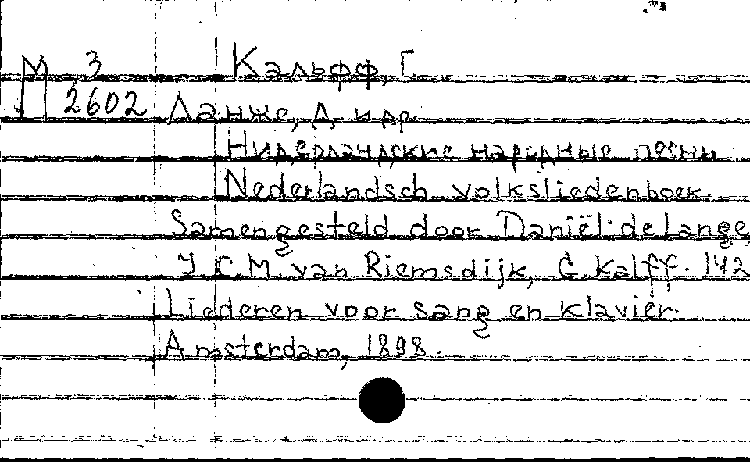 М 3 Кальфф, Г.
2602 Ланже, Д. и др.
Нидерландские народные песни
Nederlandsch volksliedenboek.
Samengesteld door Daniël de Lange,
J.C.M. van Riemsdijk, G. Kalff. 142
Liederen voor sang en klavier.
Amsterdam, 1898.